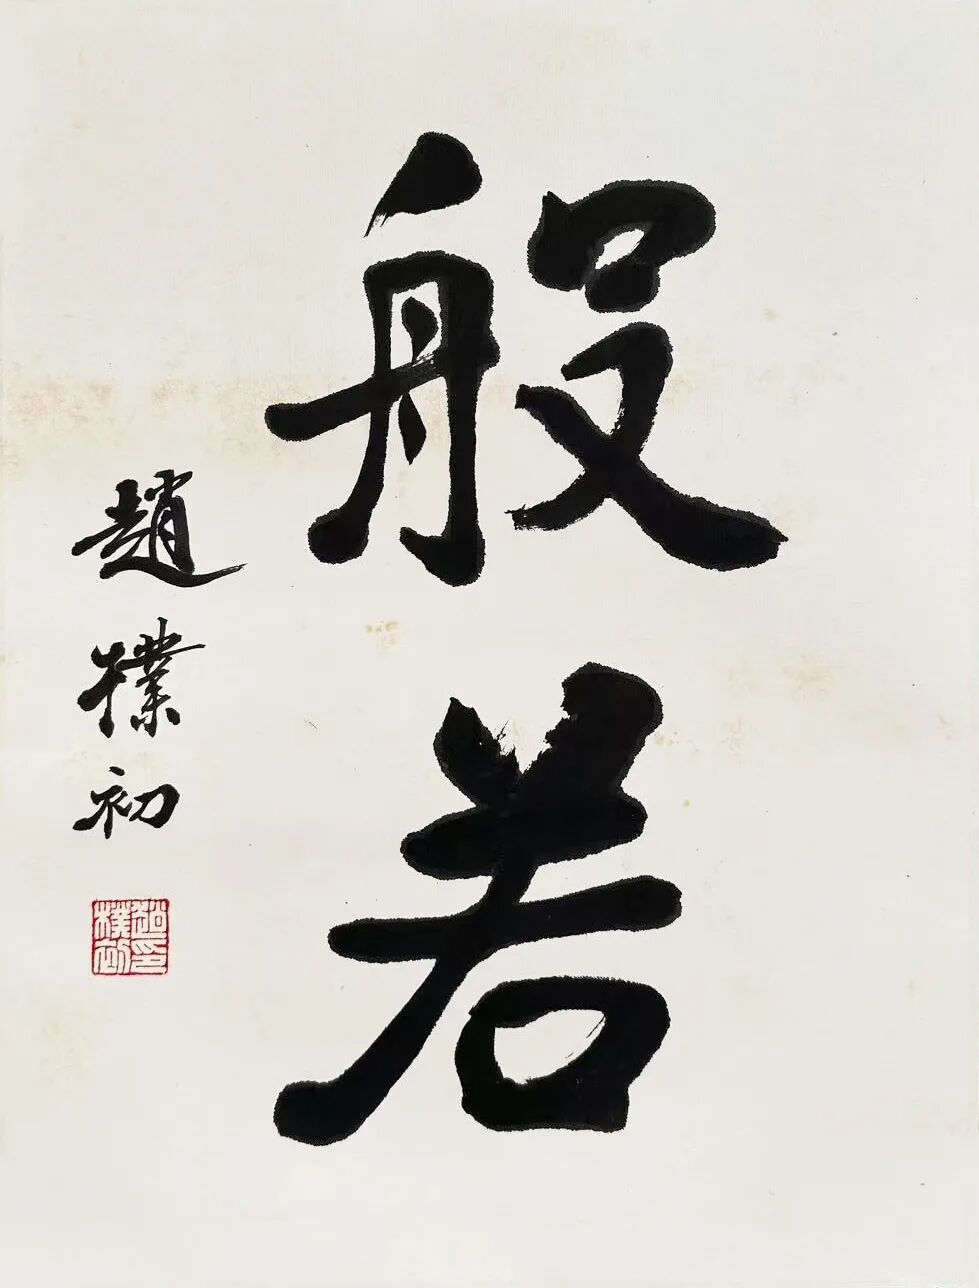 般若
趙樸初
趙樸初印